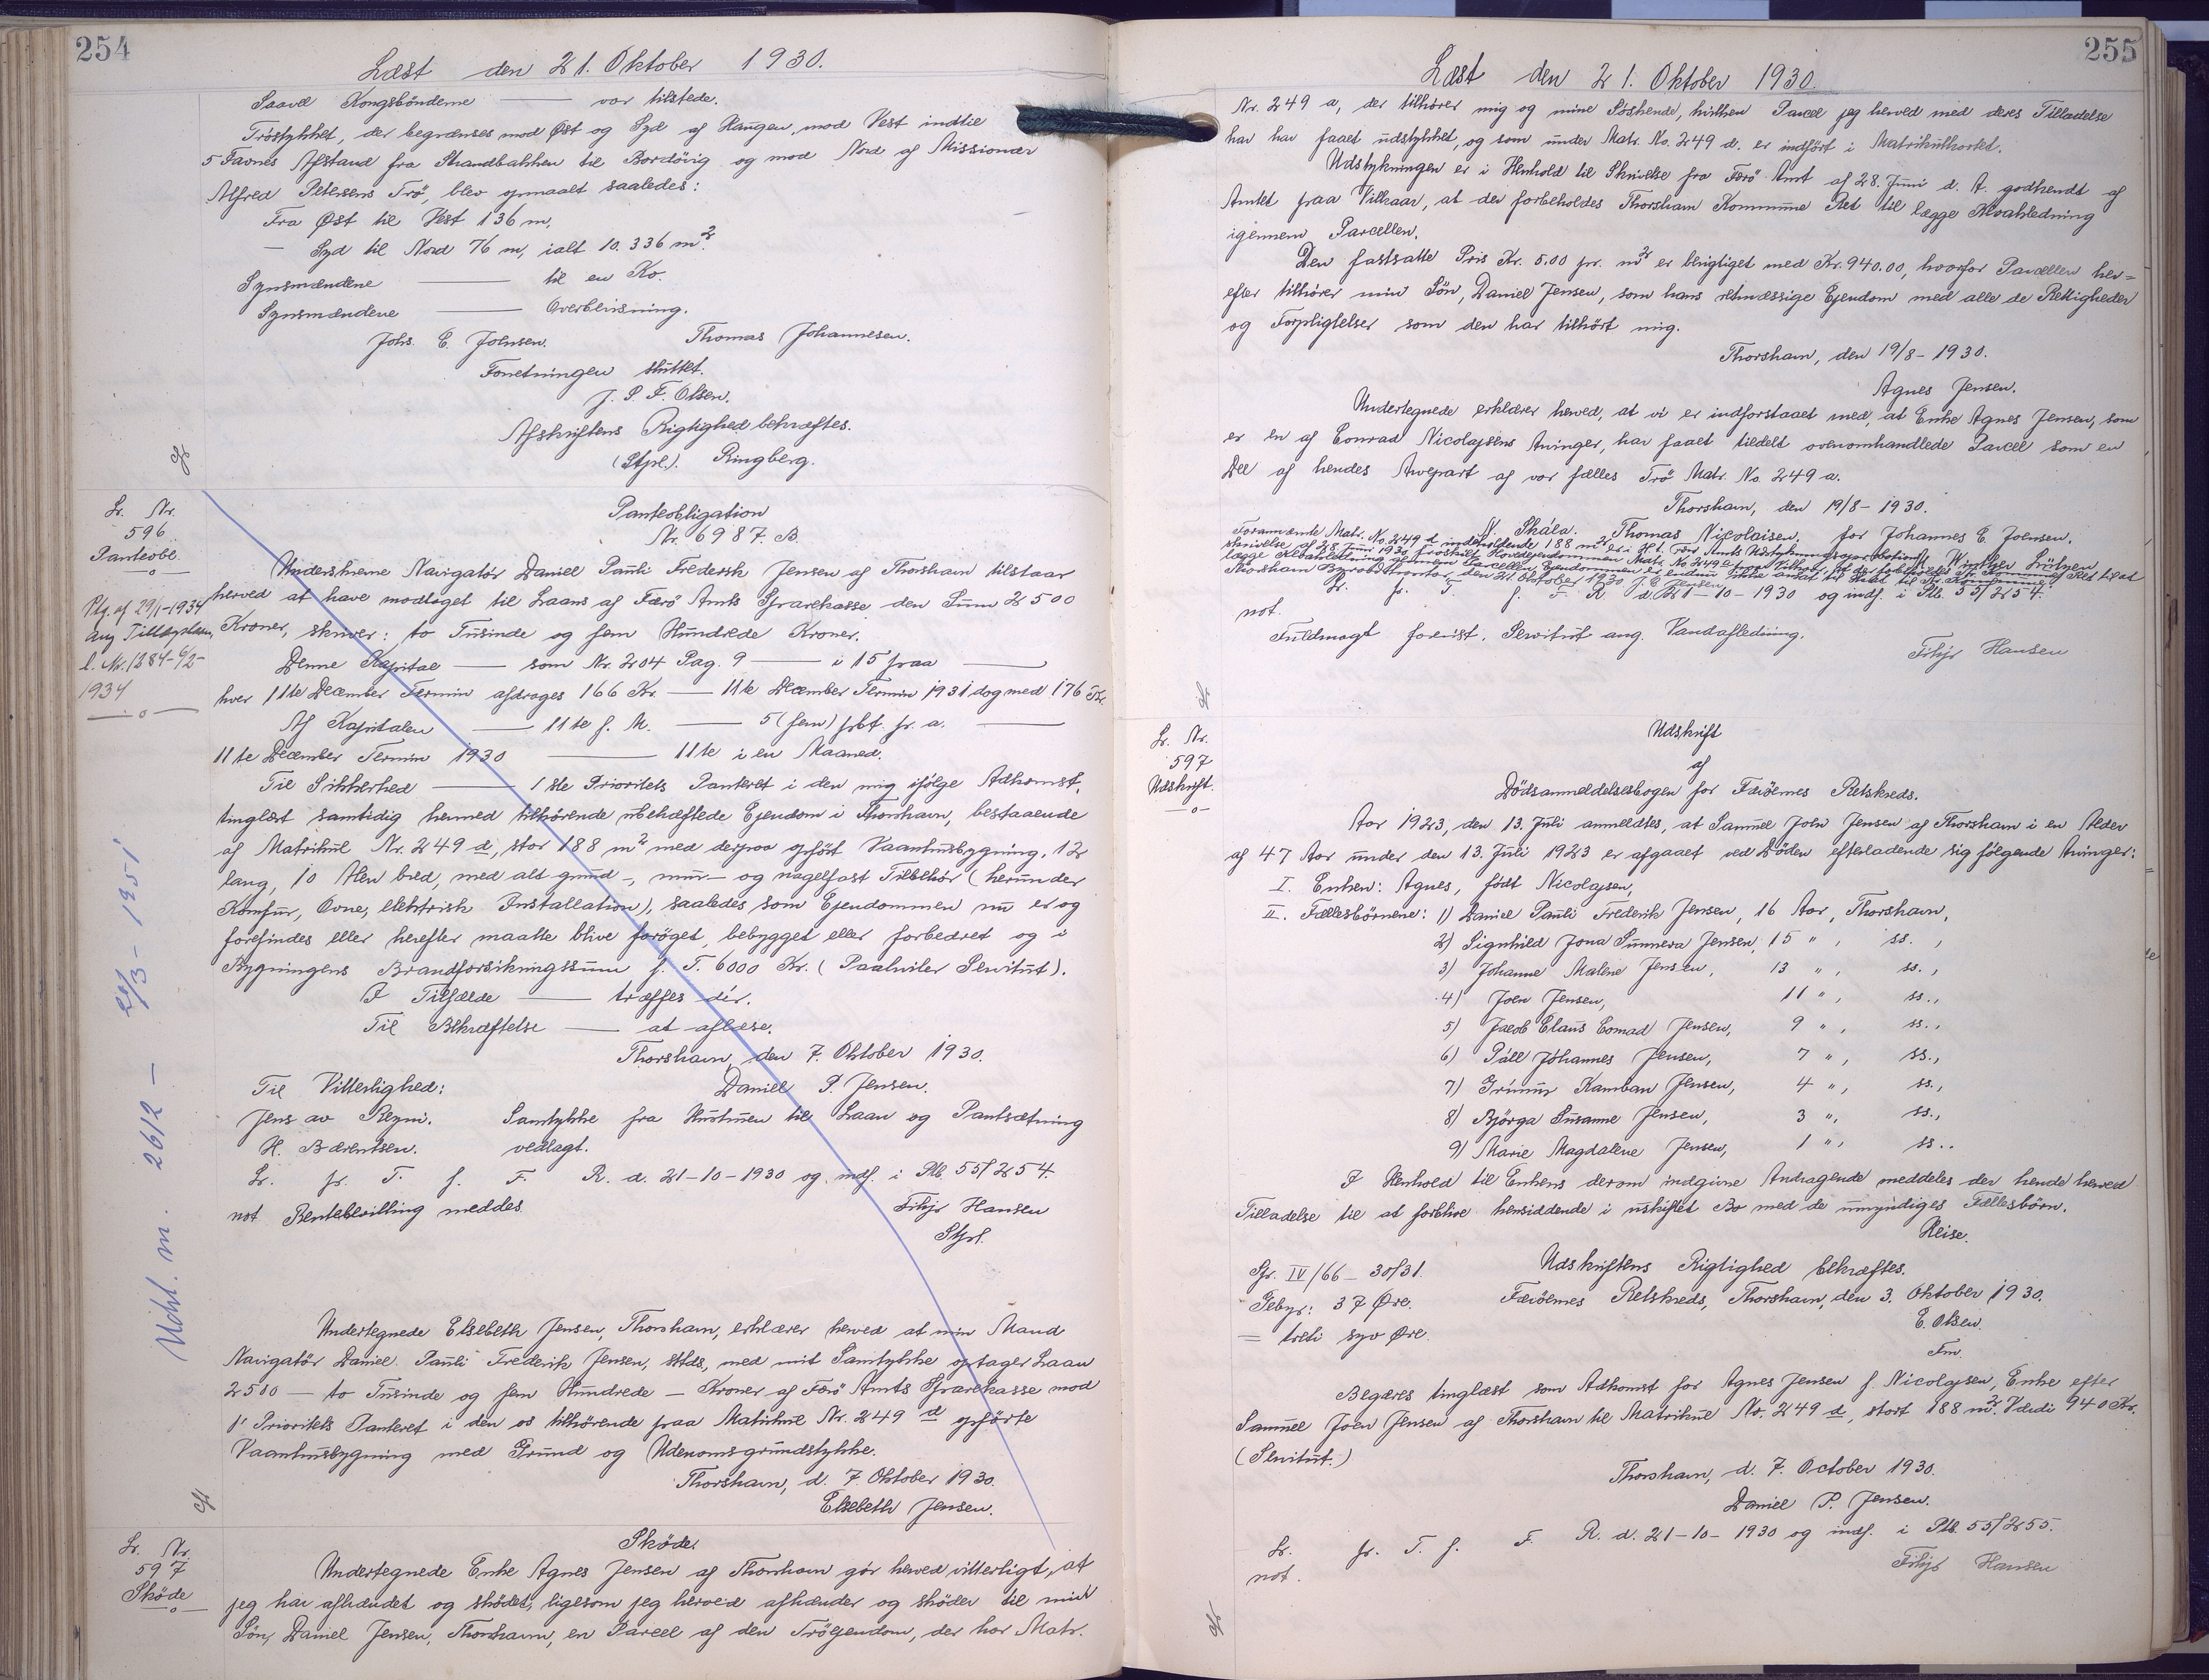 254
Læst den 21. Oktober 1930.
Saavel Kongsbönderne — var tilstede.
Tröstykket, der begrænses mod Øst og Syd af Haugen, mod Vest indtil
5 Favnes Afstand fra Strandbakken til Bordövig og mod Nord af Missionær
Alfred Petersens Trö, blev opmaalt saaledes:
Fra Øst til Vest 136 m,
— Syd til Nord 76 m, ialt 10.336 m².
Synsmændene — til en Ko.
Synsmændene — Overbevisning.
Johs. E. Joensen. Thomas Johannesen.
Forretningen sluttet.
J. P. F. Olsen.
Afskriftens Rigtighed bekræftes.
(Stpl.). Ringberg.
Lr. Nr.
596
Panteobl.
Ptg. af 29/1-1934
ang Tillægslaan,
l. Nr. 1384-6/2-
1934
Udsl. m. 2612 — 22/3 - 1951
Panteobligation
Nr. 6987. B.
Underskrevne Navigatör Daniel Pauli Frederik Jensen af Thorshavn tilstaar
herved at have modtaget til Laans af Færö Amts Sparekasse den Sum 2500
Kroner, skriver: to Tusinde og fem Hundrede Kroner.
Denne Kapital — som Nr. 204 Pag. 9 — i 15 paa —
hver 11te December Termin afdrages 166 Kr. — 11te December Termin 1931 dog med 176 Kr.
Af Kapitalen — 11te f. M. — 5 (fem) pCt. p. a. —
11te December Termin 1930 — 11te i en Maaned.
Til Sikkerhed — 1ste Prioritets Panteret i den mig ifölge Adkomst,
tinglæst samtidig hermed tilhörende ubehæftede Ejendom i Thorshavn, bestaaende
af Matrikul Nr. 249 d, stor 188 m² med derpaa opfört Vaanhusbygning, 12
lang, 10 Alen bred, med alt grund-, mur- og nagelfast Tilbehör (herunder
Komfur, Ovne, elektrisk Installation), saaledes som Ejendommen nu er og
forefindes eller herefter maatte blive foröget, bebygget eller forbedret og i
Bygningens Brandforsikringssum f. T. 6000 Kr. (Paahviler Servitut).
I Tilfælde — træffes dér.
Til Bekræftelse — at aflæse.
Thorshavn, den 7. Oktober 1930.
Til Vitterlighed: Daniel P. Jensen.
Jens av Reyni. Samtykke fra Hustruen til Laan og Pantsætning
H. Bærentsen. vedlagt.
Lr. pr. T. f. F. R. d. 21-10-1930 og indf. i Ptb. 55/254.
not Rentebevilling meddes Filip Hansen
Stpl.
Undertegnede Elsebeth Jensen, Thorshavn, erklærer herved at min Mand
Navigatör Daniel Pauli Frederik Jensen, sttds, med mit Samtykke optager Laan
2500 — to Tusinde og fem Hundrede — Kroner af Færö Amts Sparekasse mod
1' Prioritets Panteret i den os tilhörende paa Matrikul Nr. 249 d opförte
Vaanhusbygning med Grund og Udenomsgrundstykke.
Thorshavn, d. 7 Oktober 1930.
Elsebeth Jensen.
Lr. Nr.
597
Sköde
Sköde.
Undertegnede Enke Agnes Jensen af Thorshavn gör herved vitterligt, at
jeg har afhændet og sködet, ligesom jeg herved afhænder og sköder til min
Sön, Daniel Jensen, Thorshavn, en Parcel af den Tröejendom, der har Matr.
255
Læst den 21. Oktober 1930.
Nr. 249 a, der tilhører mig og mine Söskende, hvilken Parcel jeg herved med deres Tilladelse
har har faaet udstykket, og som under Matr. No. 249 d. er indfört i Matrikulkortet.
Udstykningen er i Henhold til Skrivelse fra Færö Amt af 28. Juni d. A. godkendt af
Amtet paa Vilkaar, at der forbeholdes Thorshavn Kommune Ret til lægge Kloakledning
igennem Parcellen.
Den fastsatte Pris Kr. 5.00 pr. m² er berigtiget med Kr. 940.00, hvorfor Parcellen her=
efter tilhörer min Sön, Daniel Jensen, som hans retmæssige Ejendom med alle de Rettigheder
og Forpligtelser som den har tilhört mig.
Thorshavn, den 19/8-1930.
Agnes Jensen.
Undertegnede erklærer herved, at vi er indforstaaet med, at Enke Agnes Jensen, som
er en af Conrad Nicolajsens Arvinger, har faaet tildelt ovenomhandlede Parcel som en
Del af hendes Arvepart af vor fælles Trö Matr. No. 249 a.
Thorshavn, den 19/8-1930.
N. Skála. Thomas Nicolaisen. for Johannes E. Joensen.
Forannævnte Matr. No. 249 d indeholdende 188 m² er i Hl. Færö Amts Udstykningsapprobation
skrivelse af 28 Juni 1930 frastilet Hovedejendommen Matr. No 249 a paa Vilkaar, at der forbeholdes
lægge Kloakledning gennem Parcellen.
Thorshavn Byraadskontor, den 21 Oktober 1930
Lr. pr. T. f. F. R. d. 21-10-1930 og indf. i Ptb. 55/254.
not.
Fuldmagt forevist. Servitut ang. Vandafledning.
Filip Hansen
Lr. Nr.
597
Udskrift.
Udskrift
af
Dödsanmeldelsesbogen for Færöernes Retskreds.
Aar 1923, den 13. Juli anmeldtes, at Samuel Joen Jensen af Thorshavn i en Alder
af 47 Aar under den 13. Juli 1923 er afgaaet ved Döden efterladende sig følgende Arvinger:
I. Enken: Agnes, født Nicolajsen,
II. Fællesbörnene: 1) Daniel Pauli Frederik Jensen, 16 Aar, Thorshavn,
2) Signhild Jona Sunneva Jensen, 15 ", ss.,
3) Johanne Malene Jensen, 13 ", ss.,
4) Joen Jensen, 11 ", ss.,
5) Jacob Claus Conrad Jensen, 9 ", ss.,
6) Páll Jóhannes Jensen, 7 ", ss.,
7) Grímur Kamban Jensen, 4 ", ss.,
8) Björga Susanne Jensen, 3 ", ss.,
9) Marie Magdalene Jensen, 1 ", ss..
I Henhold til Enkens derom indgivne Andragende meddeles der hende herved
Tilladelse til at forblive hensiddende i uskiftet Bo med de umyndiges Fællesbörn.
Heise.
Udskriftens Rigtighed bekræftes.
Spr. IV/66 - 30/31.
Gebyr: 37 Øre. Færöernes Retskreds, Thorshavn, den 3. Oktober 1930.
= treti syv Øre. E. Olsen.
Fm.
Begæres tinglæst som Adkomst for Agnes Jensen f. Nicolajsen, Enke efter
Samuel Joen Jensen af Thorshavn til Matrikul No. 249 d, stort 188 m². Værdi 940 Kr.
(Servitut.)
Thorshavn, d. 7. October 1930.
Daniel P. Jensen.
Lr. pr. T. f. F. R. d. 21-10-1930 og indf. i Ptb. 55/255.
not. Filip Hansen